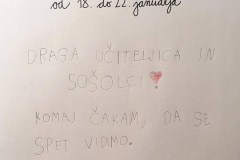 od 18. do 22. januarja
DRAGA UČITELJICA IN
SOŠOLCI
KOMAJ ČAKAM, DA SE
SPET VIDIMO.